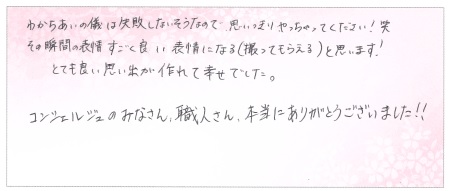 わかちあいの儀は失敗しないそうなので思いっきりやっちゃってください！笑
その瞬間の表情すごく良い表情になる(撮ってもらえる)と思います！
とても良い思い出が作れて幸せでした。
コンシェルジュのみなさん、職人さん、本当にありがとうございました!!